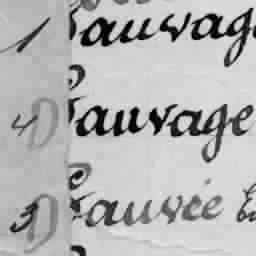 1 Sauvag
4D Sauvage
3D Sauvée